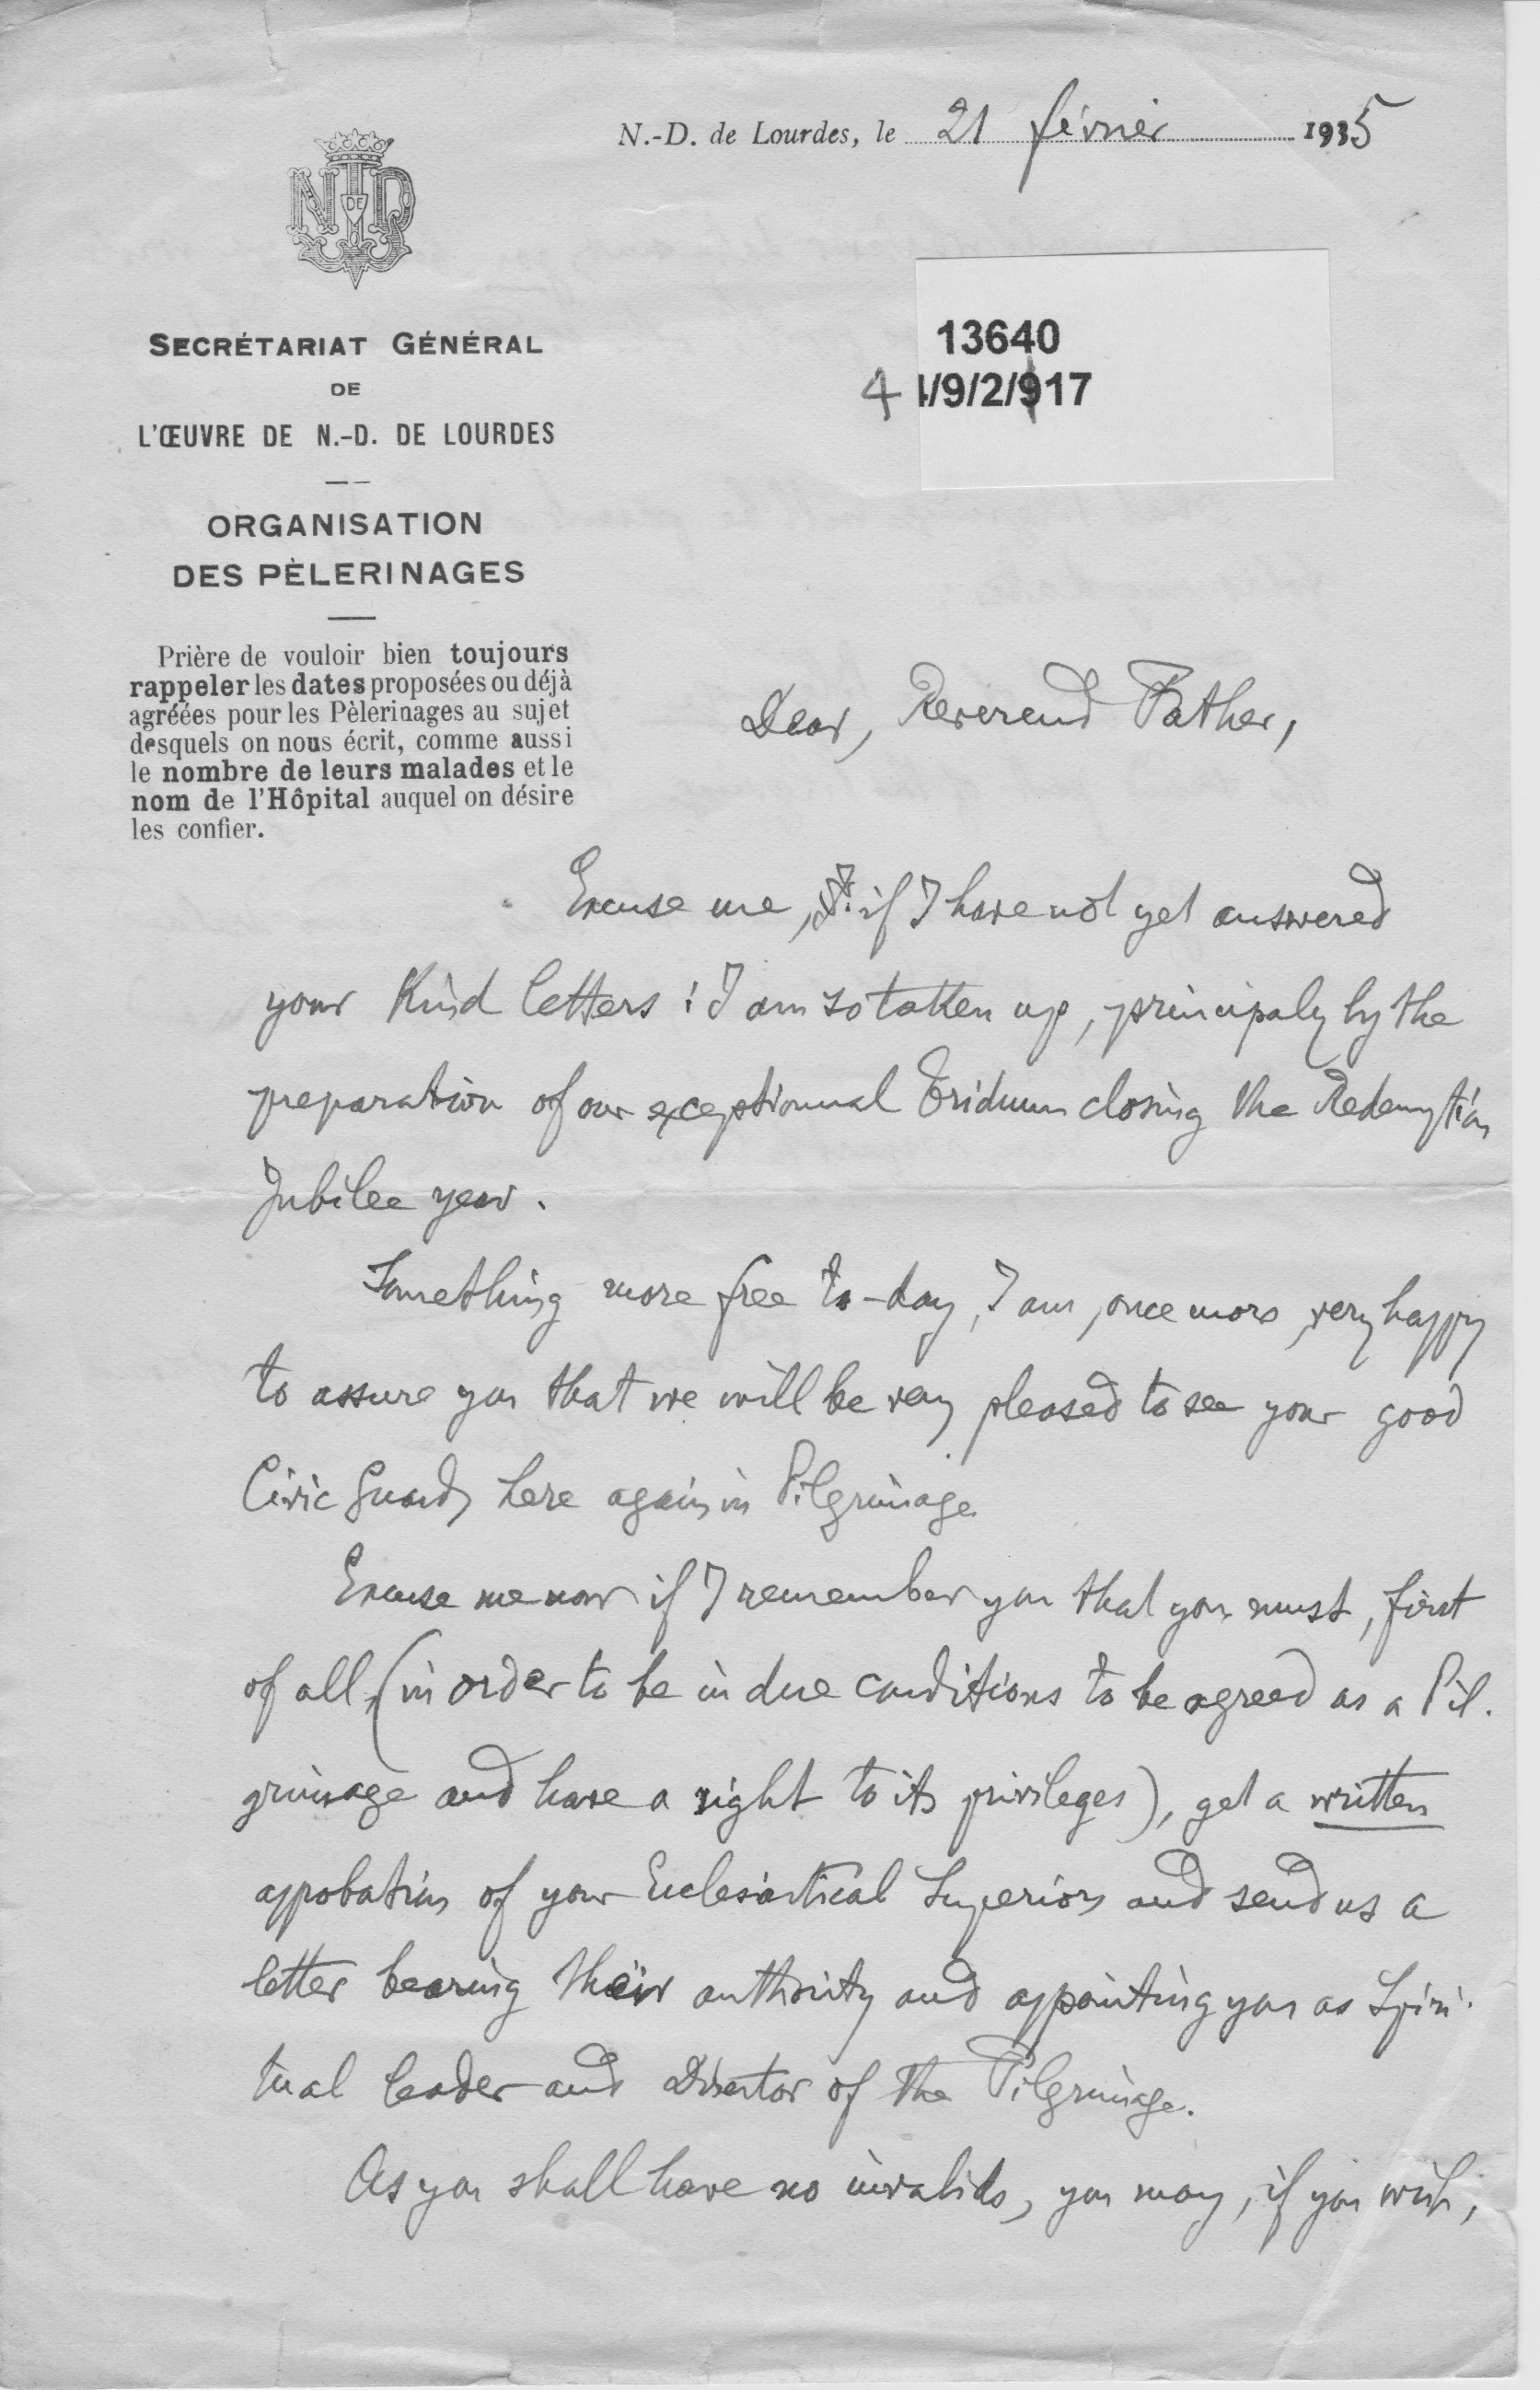 N.-D. de Lourdes, le 21 février 1935
N DE D
SECRÉTARIAT GÉNÉRAL
DE
L'ŒUVRE DE N.-D. DE LOURDES
ORGANISATION
DES PÈLERINAGES
Prière de vouloir bien toujours
rappeler les dates proposées ou déjà
agréées pour les Pèlerinages au sujet
desquels on nous écrit, comme aussi
le nombre de leurs malades et le
nom de l'Hôpital auquel on désire
les confier.
13640
4 4/9/2/917
Dear, Reverend Father,
Excuse me, if I have not yet answered
your Kind letters : I am so taken up, principaly by the
preparation of our exceptionnal Triduum closing the Redemption
Jubilee year.
Something more free to-day, I am, once more, very happy
to assure you that we will be very pleased to see your good
Civic Guards here again in Pilgrimage
Excuse me now if I remember you that you must, first
of all, (in order to be in due conditions to be agreed as a Pil-
grimage and have a right to its privileges), get a written
approbation of your Ecclesiastical Superiors and send us a
letter bearing their authority and appointing you as Spiri-
tual leader and Director of the Pilgrimage.
As you shall have no invalids, you may, if you wish,